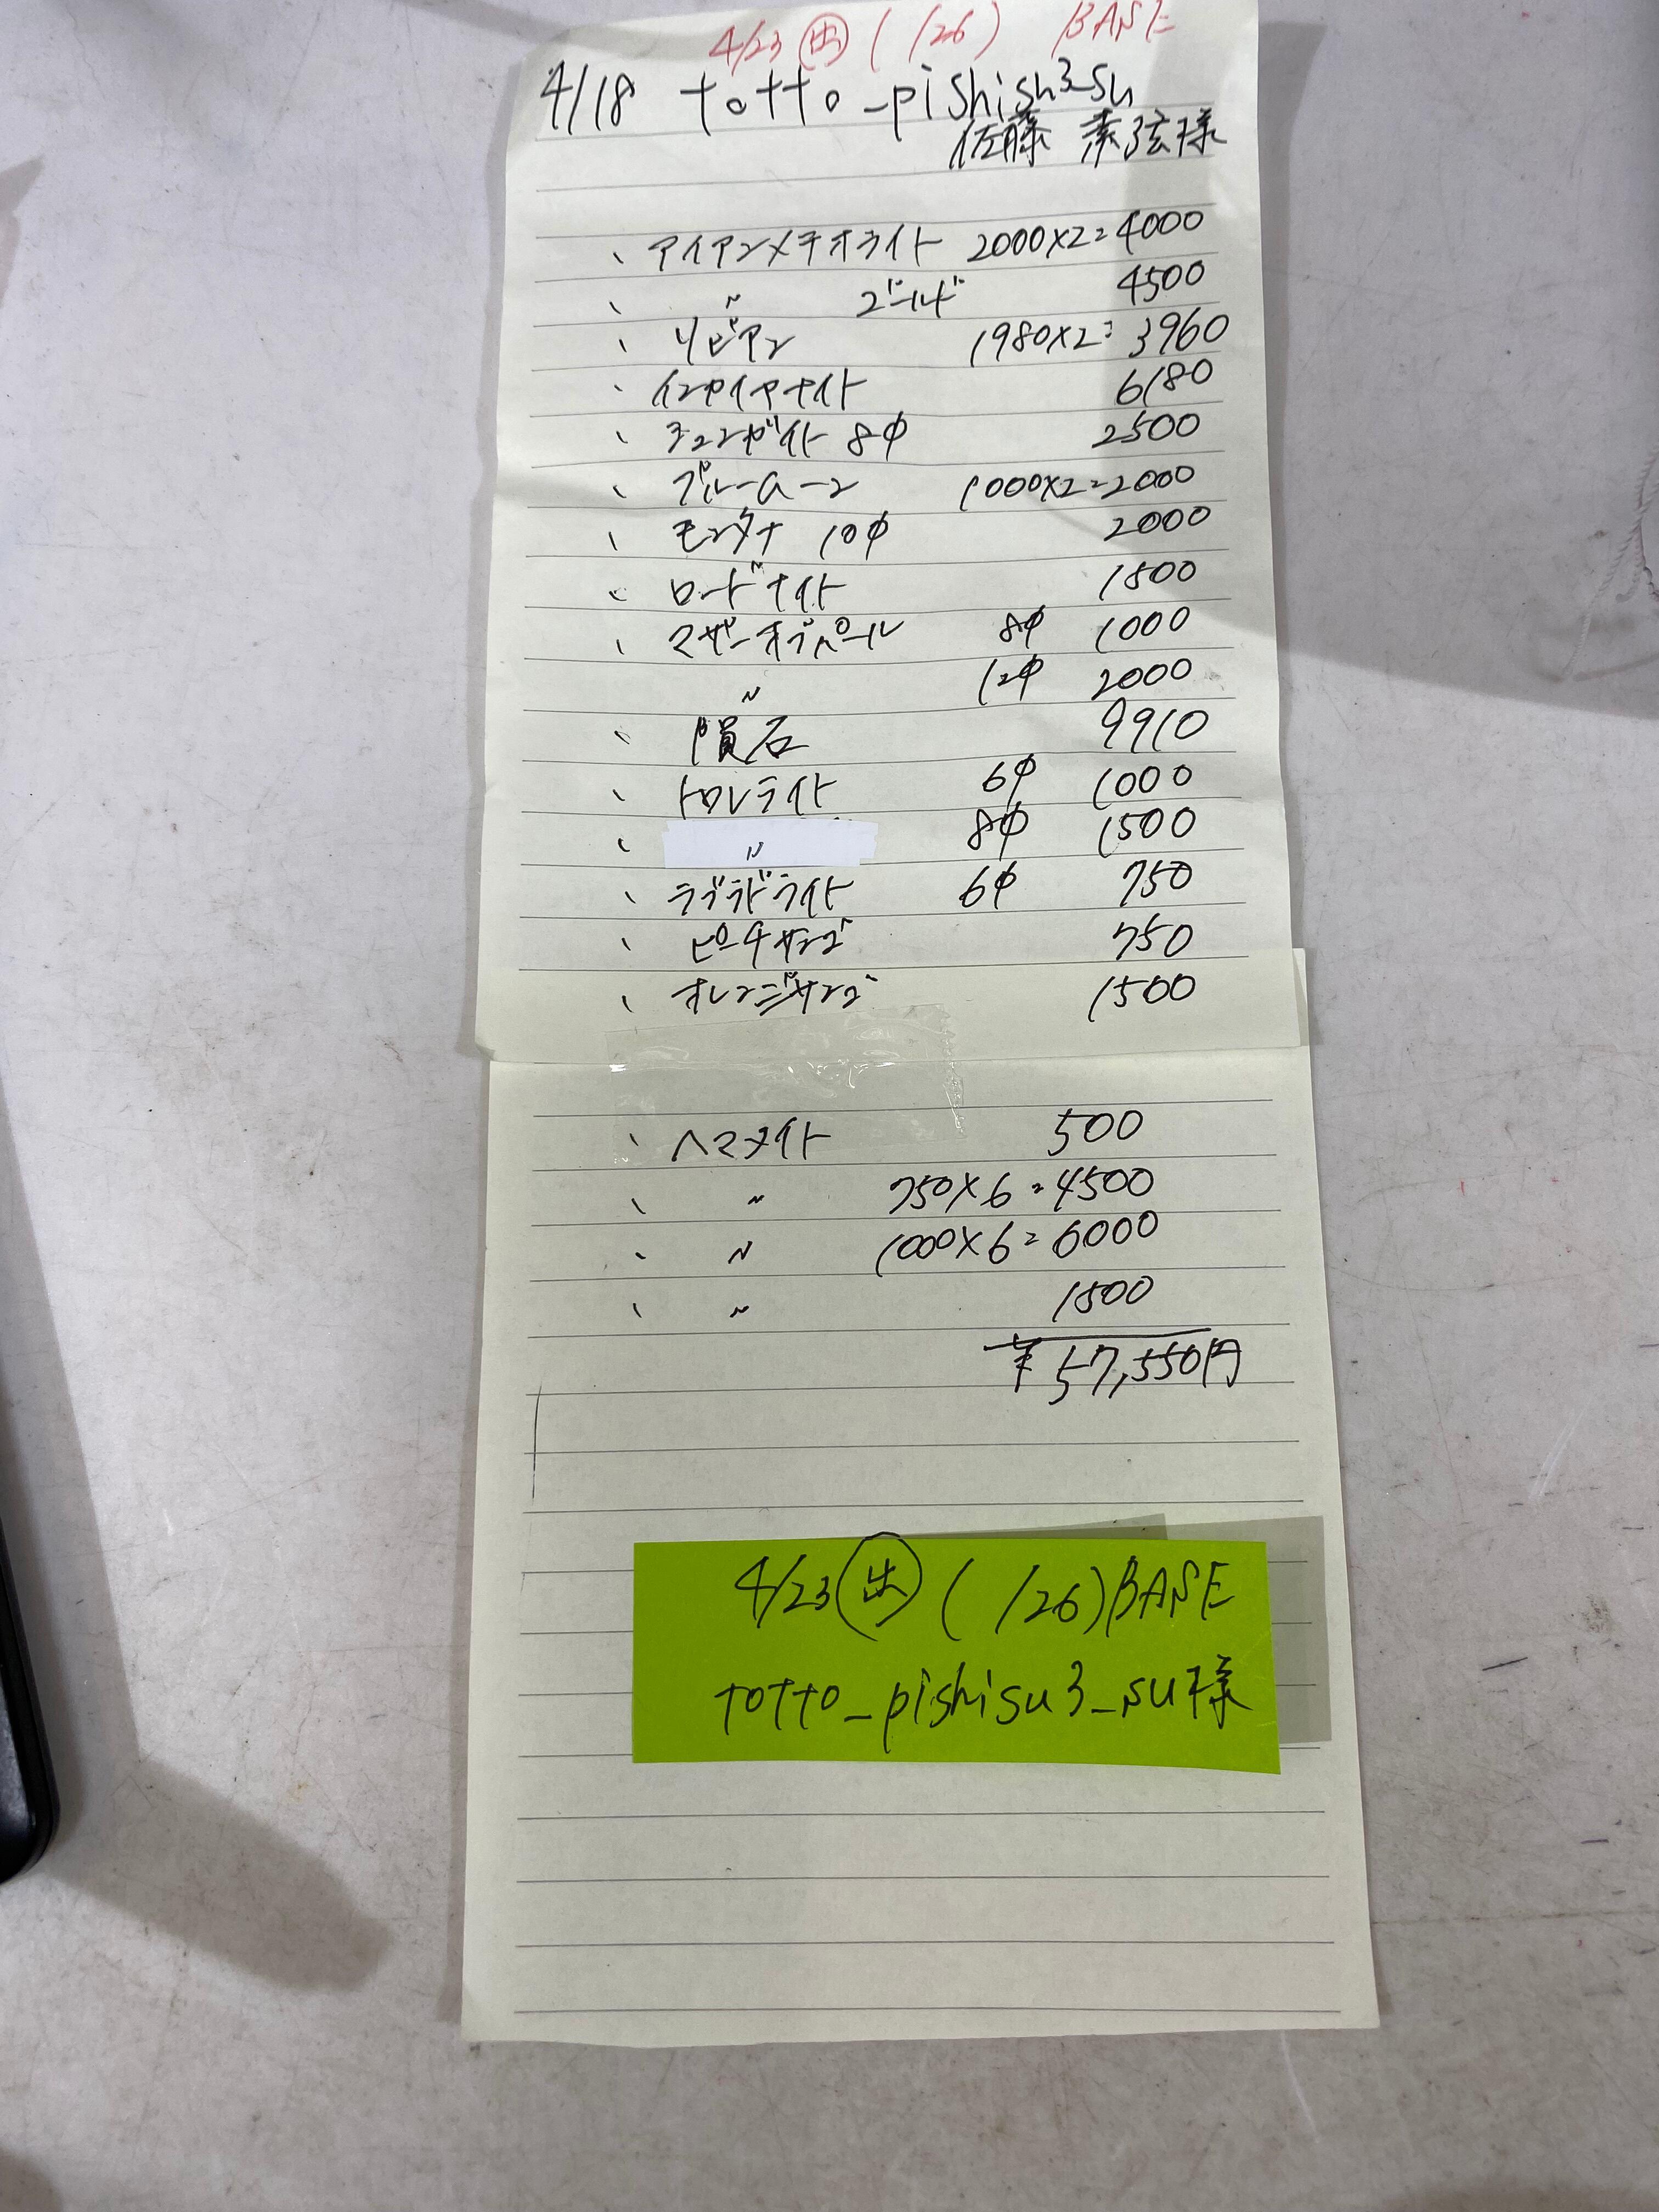 4/23 出 ( /26) BASE
4/18 totto_pishisu3_su
佐藤 素弦様
、アイアンメテオライト 2000×2=4000
、 〃 ゴールド 4500
、リビアン 1980×2=3960
、インパイヤナイト 6180
、チェンガイト 8φ 2500
、ブルーローン 1000×2=2000
、モンタナ 10φ 2000
、ロードナイト 1500
、マザーオブパール 8φ 1000
〃 12φ 2000
、隕石 9910
、トロレライト 6φ 1000
、 〃 8φ 1500
、ラブラドライト 6φ 750
、ピーチサンゴ 750
、オレンジサンゴ 1500
、ヘマタイト 500
、 〃 750×6=4500
、 〃 1000×6=6000
、 〃 1500
¥57,550円
4/23 出 ( /26) BASE
totto_pishisu3_su様